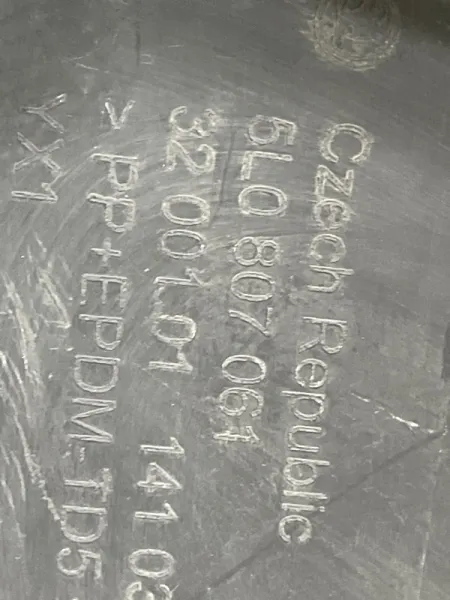 Czech Republic
5L0 807 061
32 001 01 141 03
> PP+EPDM-TD5
YX1